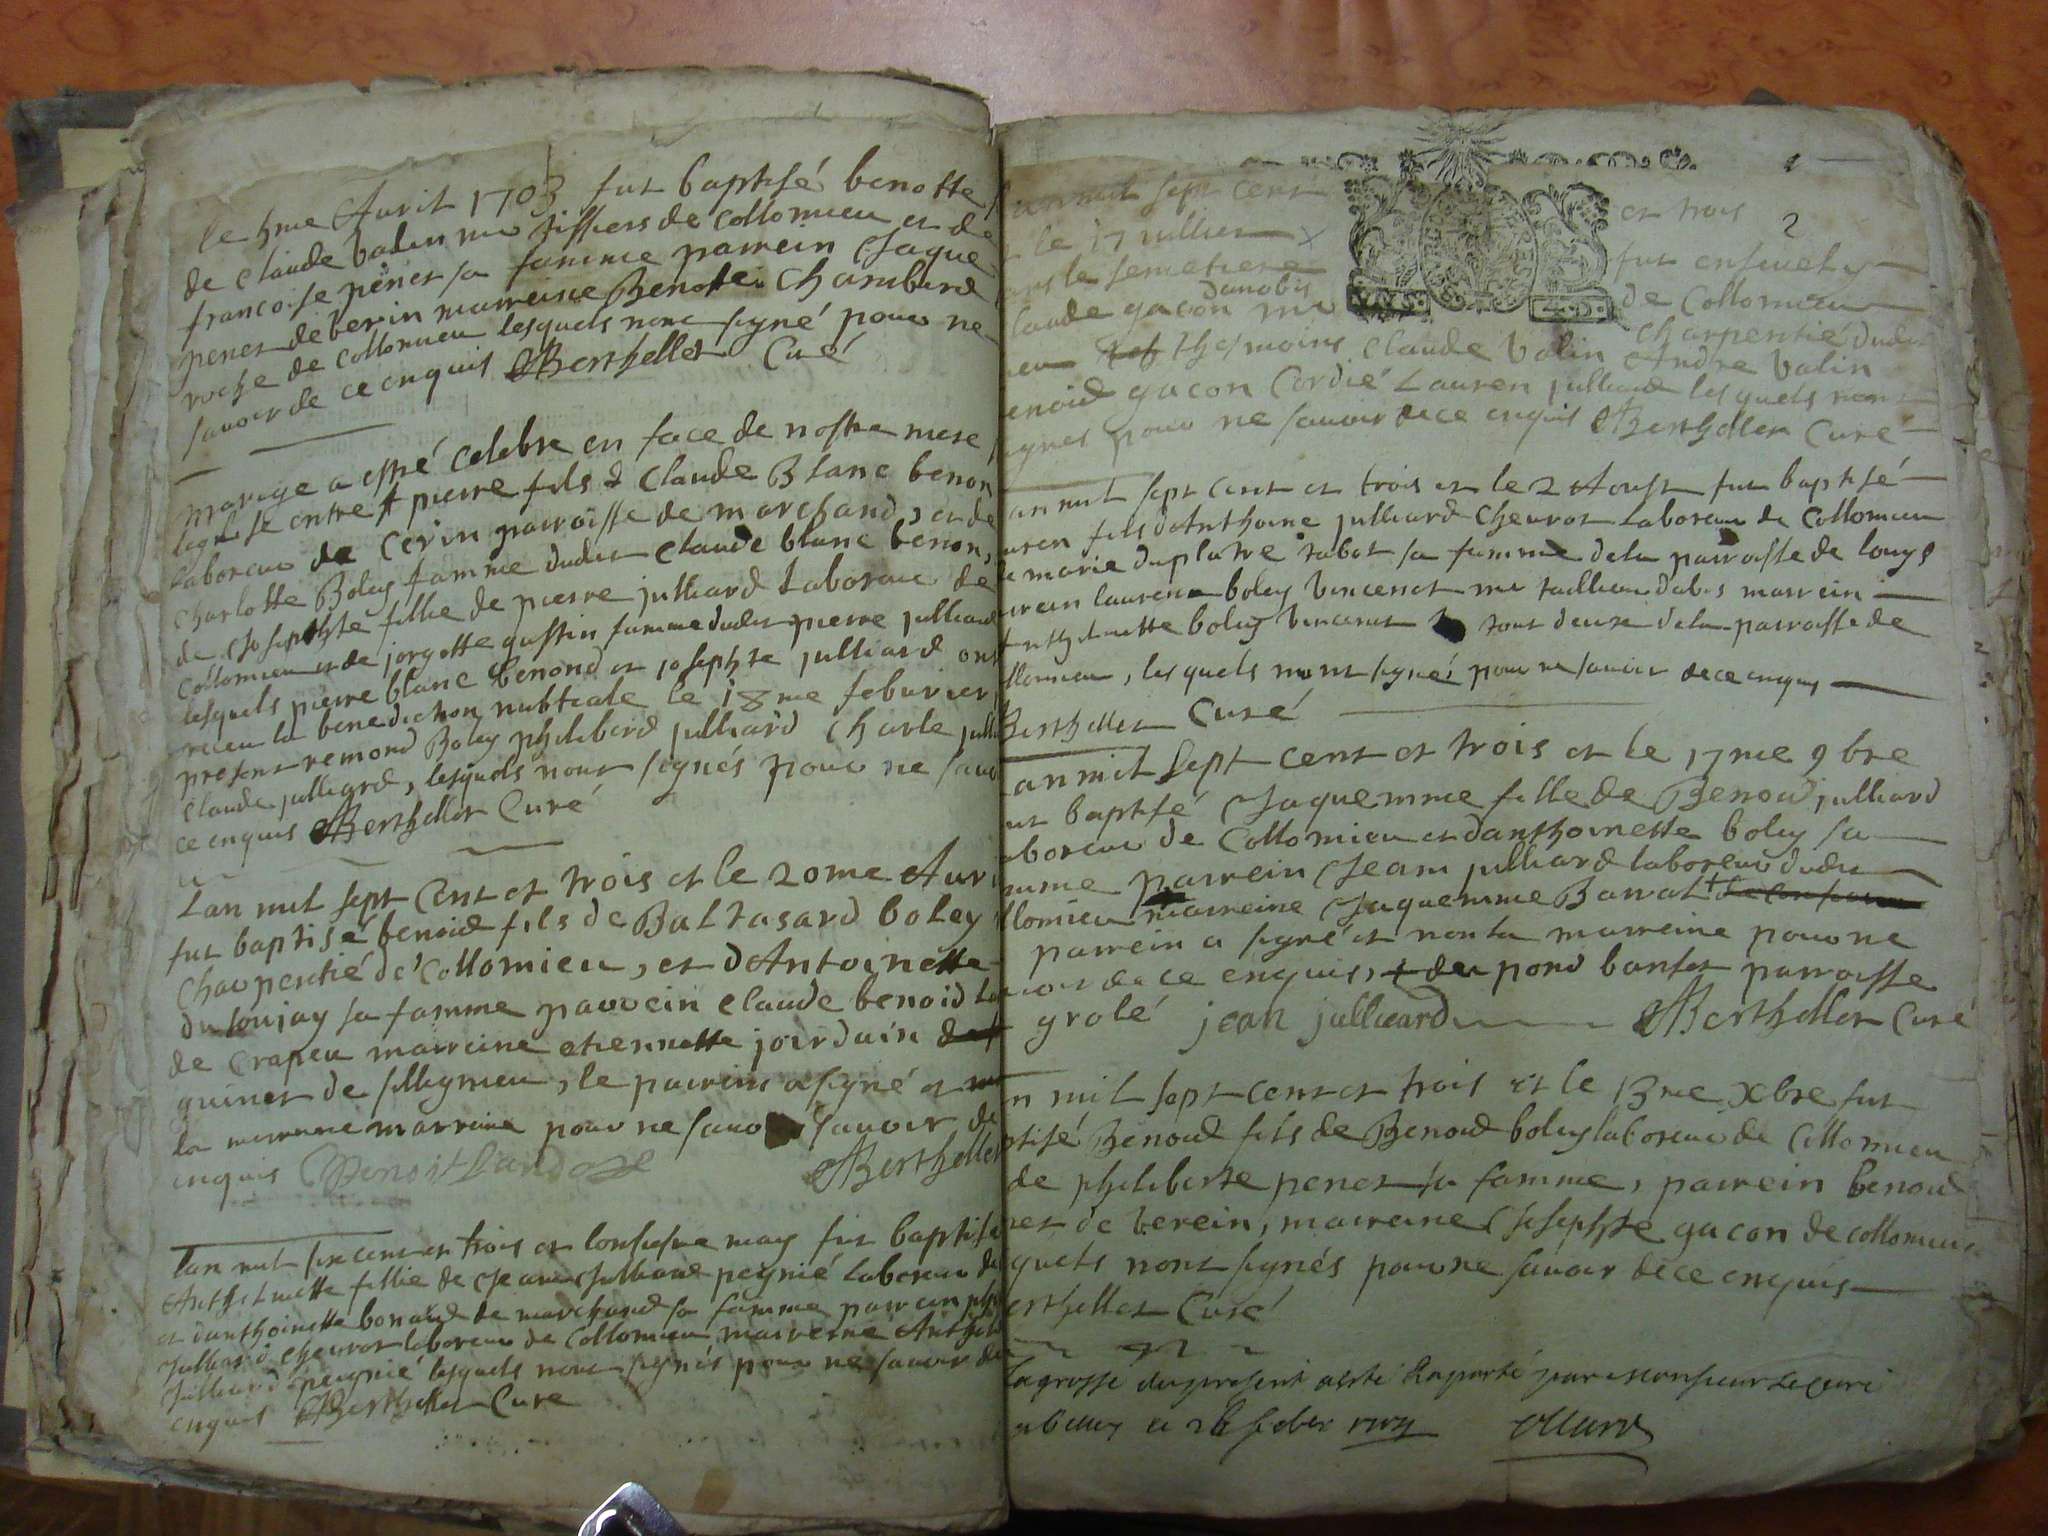 le 5me Avril 1703 fut baptisé benotte
de claude valin mr tissiers de collomieu et de
francoise penet sa famme parrein Jaque
penet de verin marreine Benotte Chambard
roche de collomieu lesquels nont signé pour ne
savoir de ce enquis Berthellet Curé
Mariage a esté celebre en face de nostre mere
leglise entre pierre fils d Claude Blanc benon
laboreur de Cerin parroisse de marchand, et de
Charlotte Boley famme dudit Claude blanc benon,
de Josephte fillie de pierre julliard Laboreur de
Collomieu et de jorgette gussin famme dudit pierre julliard
lesquels pierre blanc benond et josephte julliard ont
receu la benediction nubtiale le 18me feburier,
present remond Boley philiberd julliard Charle
Claude julliard, lesquels nont signés pour ne
ce enquis Berthellet Curé
Lan mil sept Cent et trois et le 20me Avri
fut baptisé benoid fils de Baltasard boley
Charpentié de Collomieu, et dAntoinette
du soujay sa famme parrein claude benoid
de Crapeu marreine etiennette jourdain
guinet de sillignieu, le parrein a signé et
la marreine pour ne savoir de
enquis Benoit Berthellet
Lan mil sept cent et trois et may fut baptisé
Anthelmette fillie de Jean Julliard peynié Laboreur de
et danthoinette bonard de marchand sa famme parrein
Julliard Chevrot laboreur de Collomieu marreine
Julliard peynié lesquels nont signés pour ne savoir de
enquis Berthellet Cure
1
2
lan mil sept cent et trois
le 17 juillier x fut ensevely
dans le semetiere de Collomieu
Claude gacon danobis mr Charpentié dudit
thesmoins Claude Valin Andre Valin
benoid gacon Cordié Lauren julliard lesquels nont
signés pour ne savoir de ce enquis Berthellet Curé
lan mil sept cent et trois et le 2 Aoust fut baptisé
lauren fils dAnthoine julliard Chevrot Laboreur de Collomieu
marie duplatre rabot sa famme dela parroisse de louys
parrein lauren boley vincenot mr tallieur dabis marrein
Anthelmette boley vincenot tout deux dela parroisse de
Collomieu, lesquels nont signé pour ne savoir de ce enquis
Berthellet Curé
lan mil sept cent et trois et le 17me 9bre
fut baptisé Jaquemme fille de Benoid julliard
laboreur de Collomieu et danthoinette boley sa
famme parrein Jean julliard laboreur dudit
Collomieu marreine Jaquemme Barrat
parrein a signé et non la marreine pour ne
savoir de ce enquis, + du pond banset parroisse
grolé jean julliard Berthellet Curé
lan mil sept cent et trois et le 13me Xbre fut
baptisé Benoid fils de Benoid boley laboreur de Collomieu
de philiberte penet sa famme, parrein benoid
penet de verein, marreine Josephte gacon de collomieu
lesquels nont signés pour ne savoir de ce enquis
Berthellet Curé
la grosse du present acte Raporté par monsieur le curé